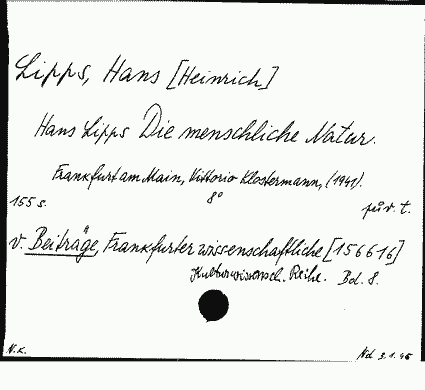 Lipps, Hans [Heinrich]
Hans Lipps Die menschliche Natur.
Frankfurt am Main, Vittorio Klostermann, (1941).
8°
155 s. v. t.
v. Beiträge, Frankfurter wissenschaftliche [156616]
Kulturwissensch. Reihe. Bd. 8.
N.K. Nd 3.1.46